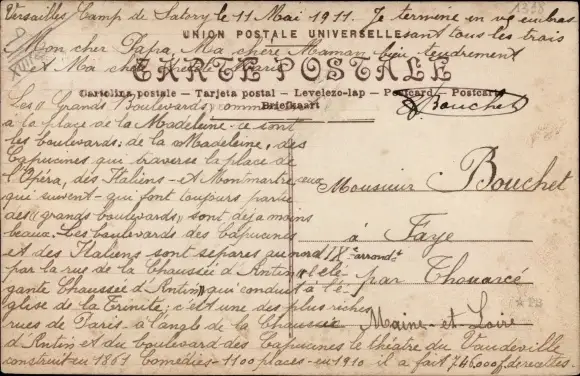 Versailles Camp de Satory le 11 Mai 1911. Je termine en vs embras
sant tous les trois
bien tendrement
1338
UNION POSTALE UNIVERSELLE
Mon cher Papa, Ma chère Maman
et Ma chère
CARTE POSTALE
Cartolina postale — Tarjeta postal — Levelezo-lap — Postcard — Postcart
Briefkaart
Bouchet
Les "Grands Boulevards" commencent
à la place de la Madeleine - ce sont
les boulevards: de la Madeleine, des
Capucines qui traverse la place de
l'Opéra, des Italiens - et Montmartre ceux
qui suivent - qui font toujours partie
des "grands boulevards" sont déjà moins
beaux. Les boulevards des Capucines
et des Italiens sont séparés au nord IXe arrondt
par la rue de la Chaussée d'Antin "l'élé
gante Chaussée d'Antin" qui conduit à l'é
glise de la Trinité; c'est une des plus riches
rues de Paris - à l'angle de la Chaussée
d'Antin et du boulevard des Capucines le théâtre du Vaudeville
construit en 1867 Comédies - 1100 places - en 1910 il a fait 746000f de recettes.
Monsieur Bouchet
à Faye
par Thouarcé
Maine-et-Loire